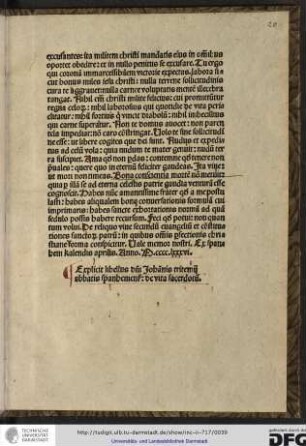 20
excusantes: ita militem christi mandatis eius in oībus
oportet obedire: et in nullo penitus se excusare. Tu ergo
qui coronā immarcessibilem victorie expectas. labora sicut
bonus miles iesu christi: nulla terrene sollicitudinis
cura te aggrauet: nulla carnis voluptatis mentē illecebra
tangat. Nihil em̄ christi milite felicius: cui promittitur
regnū celoꝝ: nihil laboriosius qui quotidie de vita peri
clitatur: nihil fortius qꝫ vincit diabolū: nihil infelicius
qui carne superatur. Non te domus auocet: non paren
tela impediat: nō caro cōstringat. Volo te sine sollicitudi
ne esse: vt libere cogites que dei sunt. Nudus et expedi
tus ad celū vola: quia nudum te mater genuit: nudū ter
ra suscipiet. Ama qd non pdas: contemne qd tenere non
pualens: quere quo in eternū feliciter gaudeas. Ita viue
vt mori non timeas. Bona conscientia mortē nō metuit
quia p illā se ad eterna celestis patrie gaudia venturā esse
cognoscit. Habes nūc amantissime frater qd a me postu
lasti: habes aliqualem bone conuersationis formulā cui
imprimaris: habes sancte exhortationis normā ad quā
sedulo possis habere recursum. Feci qd potui: non quan
tum volui. De reliquo viue secundū euangeliū et cōstitu
tiones sanctoꝝ patrū: in quibus oīs pfectionis chris
tiane forma conspicitur. Vale memor nostri. Ex span
hem kalendis aprilis. Anno. M.cccc.lxxxvi.
Explicit libellus dñi Johānis tritemij
abbatis spanhemensis: de vita sacerdotū.
TECHNISCHE
UNIVERSITÄT
DARMSTADT
http://tudigit.ulb.tu-darmstadt.de/show/inc-ii-717/0039
Universitäts- und Landesbibliothek Darmstadt
gefördert durch die
DFG